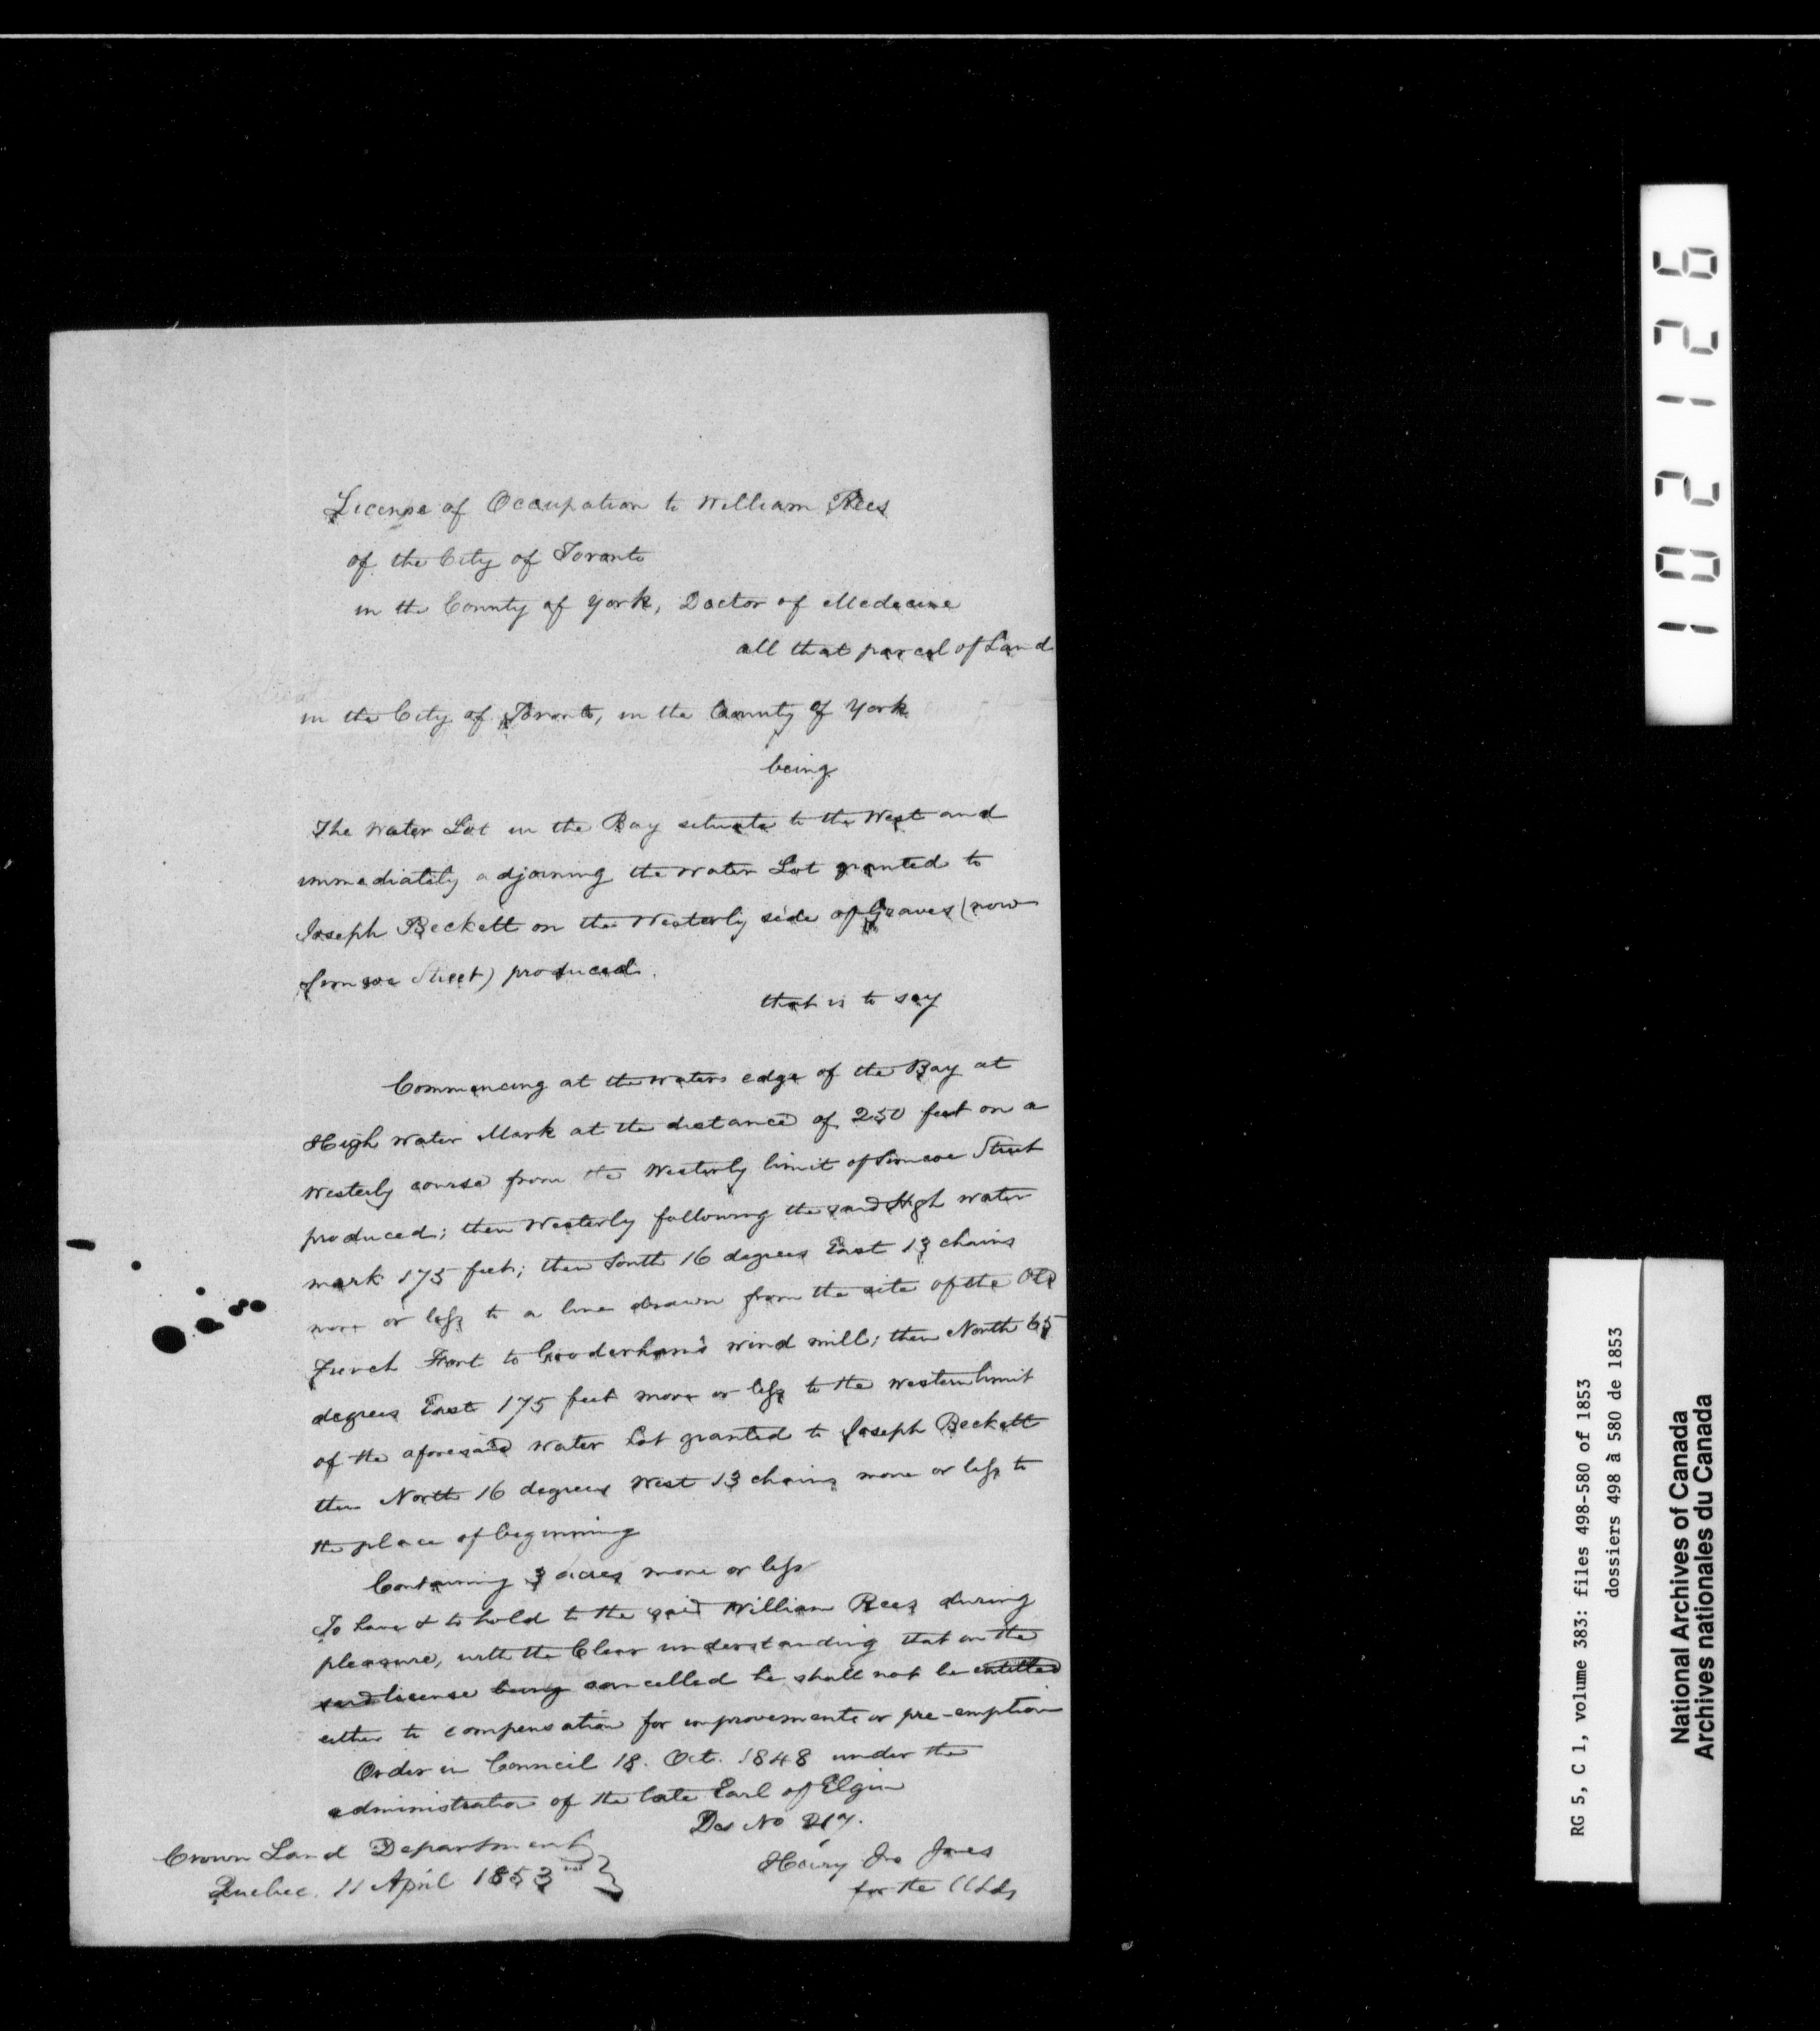 License of Occupation to William Rees
of the City of Toronto
in the County of York, Doctor of Medecine
all that parcel of Land
in the City of Toronto, in the County of York
being
The Water Lot in the Bay situate to the West and
immediately adjoining the Water Lot granted to
Joseph Beckett on the Westerly side of Graves (now
Simcoe Street) produced.
that is to say
Commencing at the waters edge of the Bay at
High Water Mark at the distance of 250 feet on a
Westerly course from the Westerly limit of Simcoe Street
produced; then Westerly following the said High water
mark 175 feet; then South 16 degrees East 13 chains
more or less to a line drawn from the site of the Old
French Fort to Gooderham's wind mill; then North 65
degrees East 175 feet more or less to the western limit
of the aforesaid Water Lot granted to Joseph Beckett
then North 16 degrees West 13 chains more or less to
the place of beginning
Containing 3 acres more or less
To have & to hold to the said William Rees during
pleasure, with the Clear understanding that on the
said license being cancelled he shall not be entitled
either to compensation for improvements or pre-emption
Order in Council 18. Oct. 1848 under the
administration of the late Earl of Elgin
Des No 217.
Crown Land Department
Quebec. 11 April 1853
Henry Jno Jones
for the CCLds
102126
RG 5, C 1, volume 383: files 498-580 of 1853
dossiers 498 à 580 de 1853
National Archives of Canada
Archives nationales du Canada